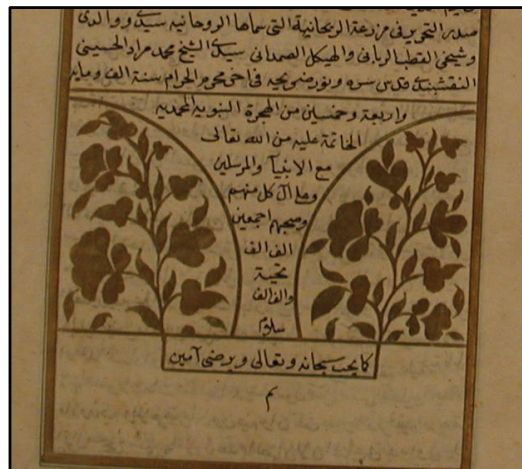 صدر التحرير في مزرعة الريحانية التي سماها الروحانيه سيدي ووالدي
وشيخي القطب الرباني والهيكل الصمداني سيدي الشيخ محمد مراد الحسيني
النقشبندي قدس سره ونور ضريحه في محرم الحرام سنة الف ومايه
واربعة وخمسين من الهجرة النبويه المحمديه
الخاتمة عليه من الله تعالى
مع الانبيآ والمرسلين
وعلى آل كل منهم
وصحبهم اجمعين
الف الف
تحية
والف الف
سلام
كما يحب سبحانه وتعالى ويرضى آمين
م